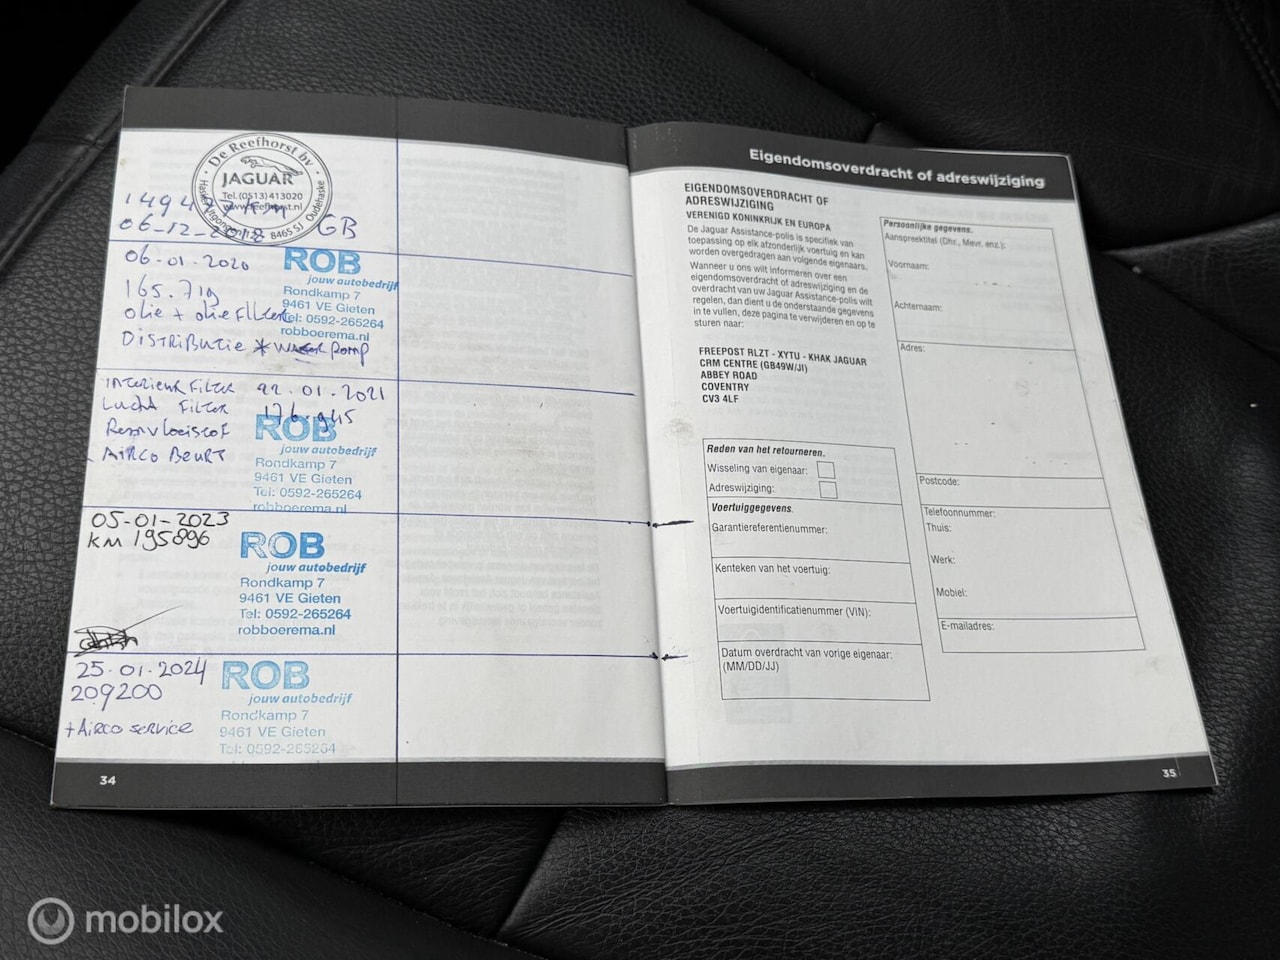 De Reefhorst bv
JAGUAR
Tel. (0513) 413020
www.reefhorst.nl
8465 SJ Oudehaske
GB
06-01-2020
165.719
olie + olie Filter
Distributie * Water pomp
ROB
jouw autobedrijf
Rondkamp 7
9461 VE Gieten
Tel: 0592-265264
robboerema.nl
Interieur Filter 22.01.2021
Lucht Filter 176.945
Remvloeistof
Airco Beurt
ROB
jouw autobedrijf
Rondkamp 7
9461 VE Gieten
Tel: 0592-265264
robboerema.nl
05-01-2023
KM 195896
ROB
jouw autobedrijf
Rondkamp 7
9461 VE Gieten
Tel: 0592-265264
robboerema.nl
25-01-2024
209200
+ Airco service
ROB
jouw autobedrijf
Rondkamp 7
9461 VE Gieten
Tel: 0592-265264
34
Eigendomsoverdracht of adreswijziging
EIGENDOMSOVERDRACHT OF
ADRESWIJZIGING
VERENIGD KONINKRIJK EN EUROPA
De Jaguar Assistance-polis is specifiek van
toepassing op elk afzonderlijk voertuig en kan
worden overgedragen aan volgende eigenaars.
Wanneer u ons wilt informeren over een
eigendomsoverdracht of adreswijziging en de
overdracht van uw Jaguar Assistance-polis wilt
regelen, dan dient u de onderstaande gegevens
in te vullen, deze pagina te verwijderen en op te
sturen naar:
FREEPOST RLZT - XYTU - KHAK JAGUAR
CRM CENTRE (GB49W/JI)
ABBEY ROAD
COVENTRY
CV3 4LF
Reden van het retourneren.
Wisseling van eigenaar:
Adreswijziging:
Voertuiggegevens.
Garantiereferentienummer:
Kenteken van het voertuig:
Voertuigidentificatienummer (VIN):
Datum overdracht van vorige eigenaar:
(MM/DD/JJ)
Persoonlijke gegevens.
Aanspreektitel (Dhr., Mevr. enz.):
Voornaam:
Achternaam:
Adres:
Postcode:
Telefoonnummer:
Thuis:
Werk:
Mobiel:
E-mailadres:
35
mobilox